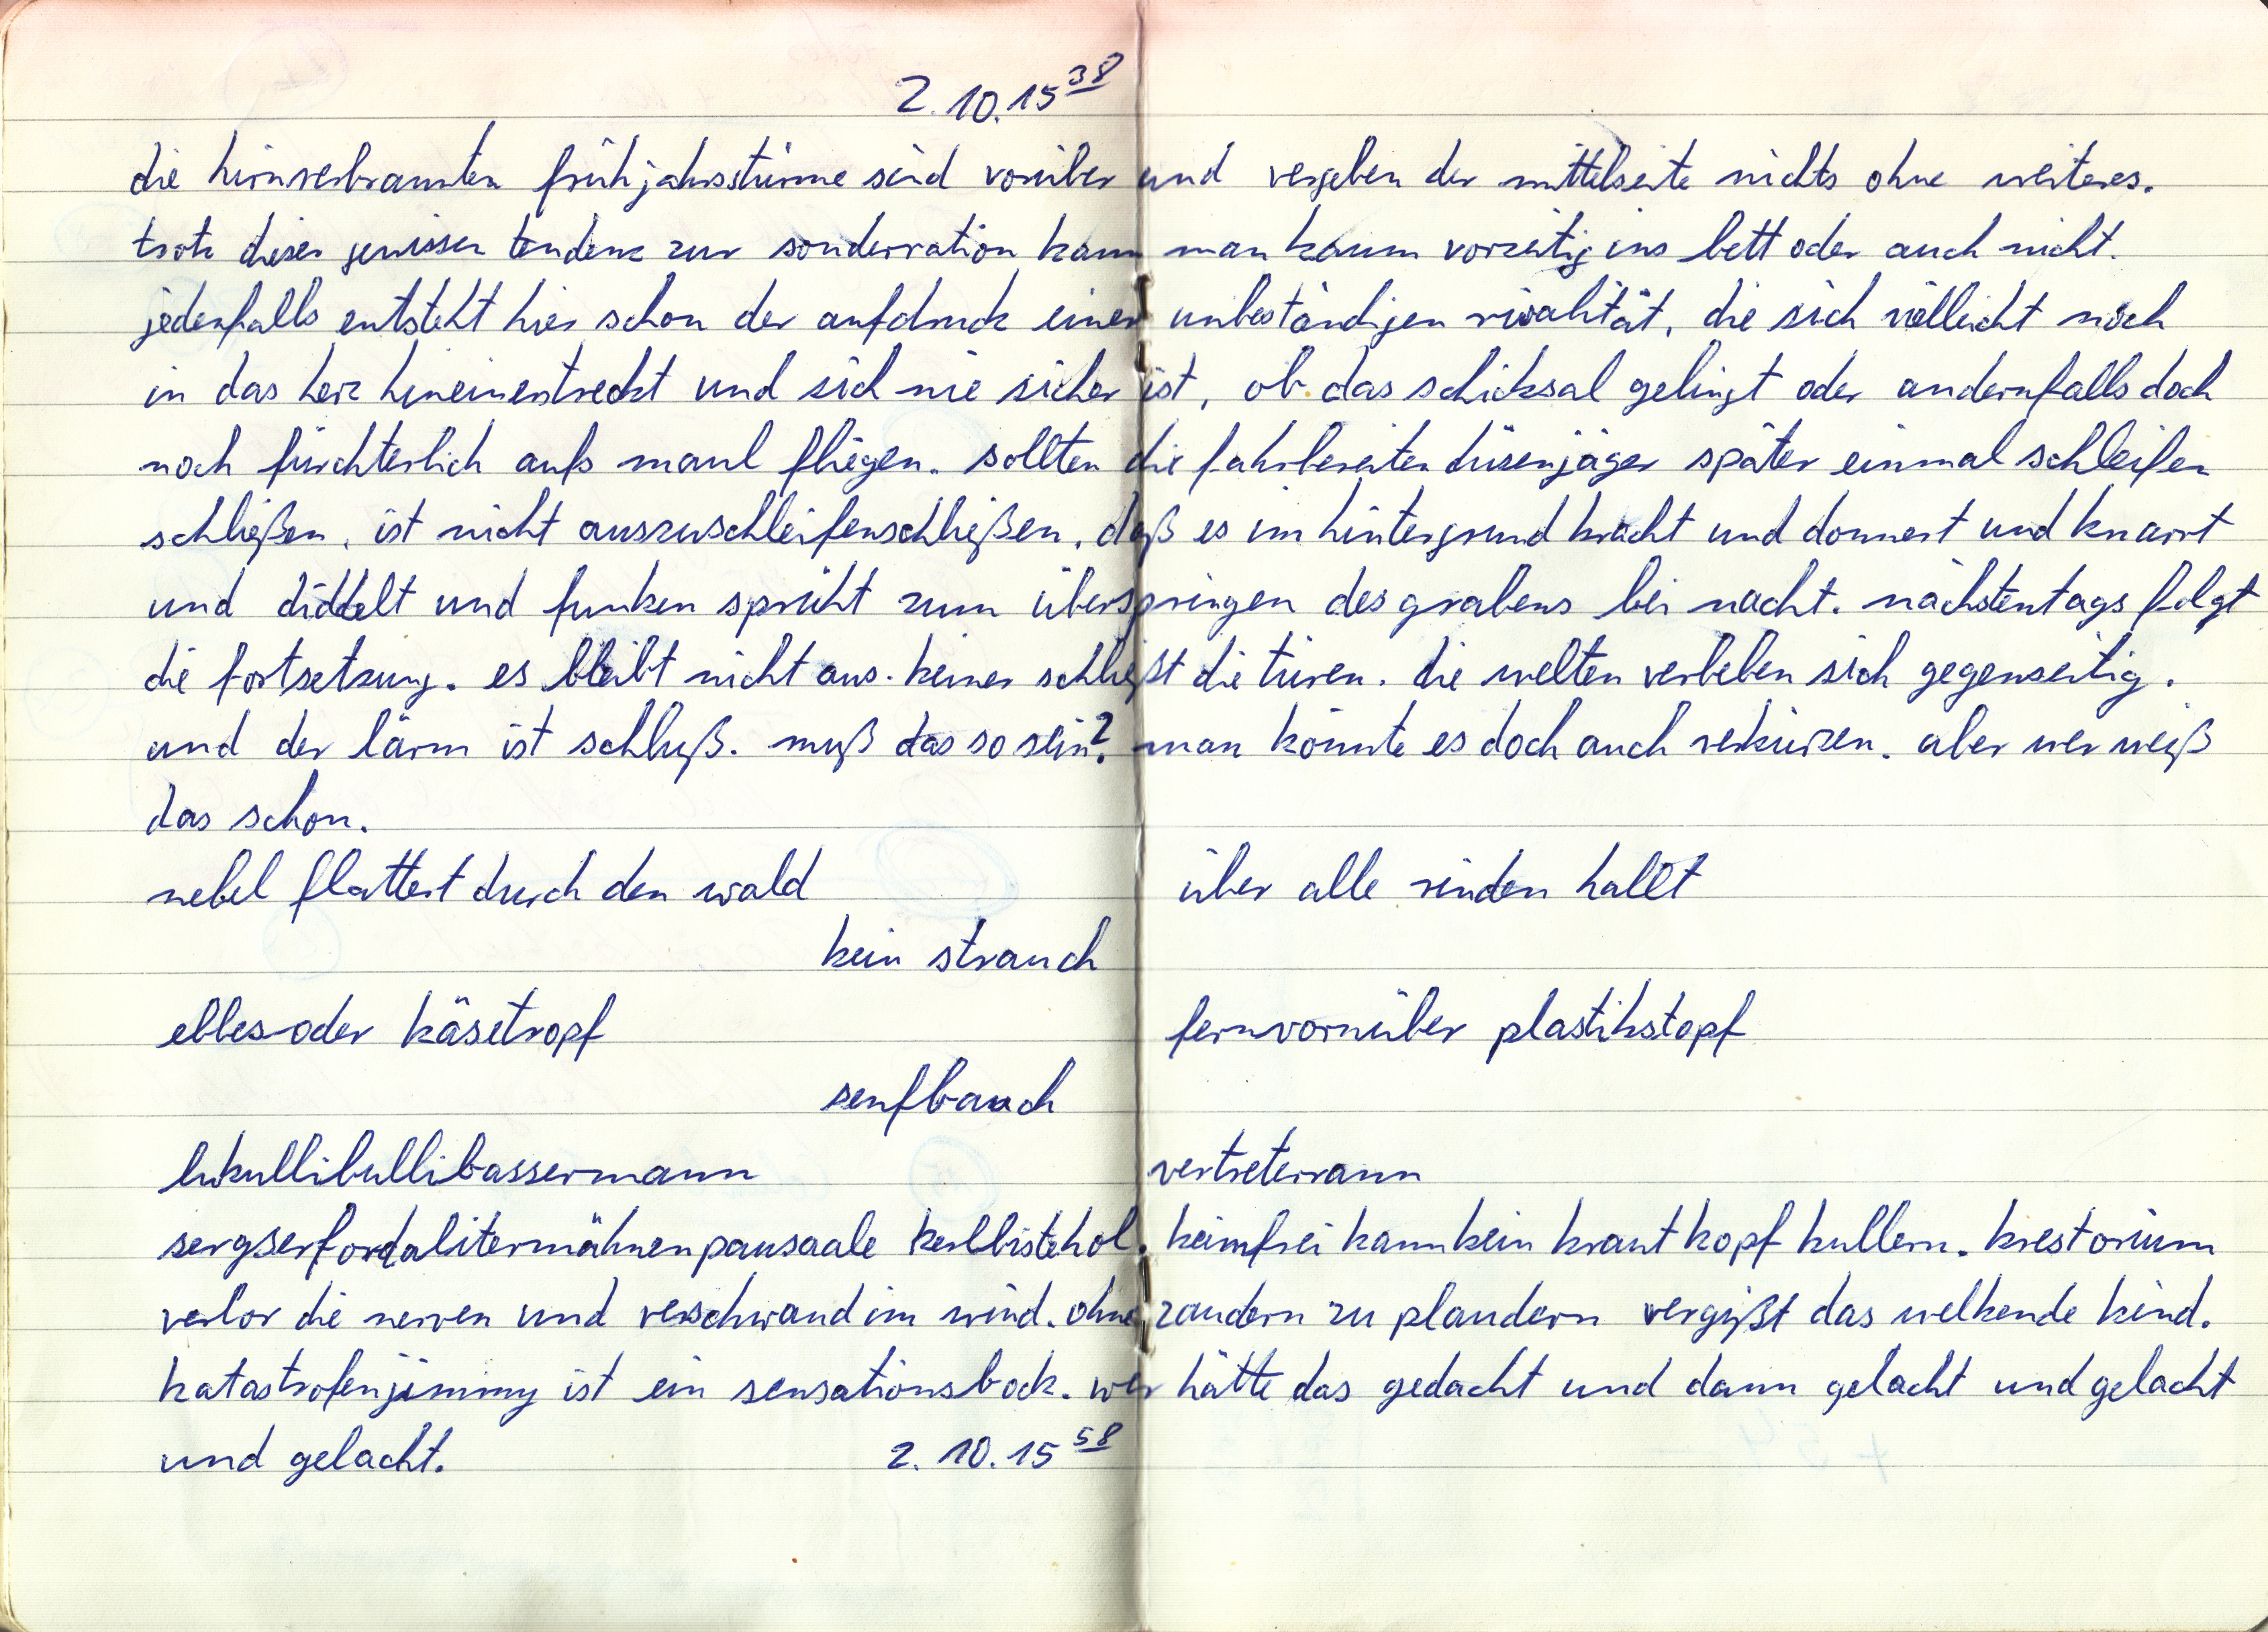 2.10.15 38
die hirnverbrannten frühjahrsstürme sind vorüber und vergeben der mittelseite nichts ohne weiteres.
trotz dieser gewissen tendenz zur sonderration kann man kaum vorzeitig ins bett oder auch nicht.
jedenfalls entsteht hier schon der aufdruck einer unbeständigen rivalität, die sich vielleicht noch
in das herz hineinerstreckt und sich nie sicher ist, ob das schicksal gelingt oder andernfalls doch
noch fürchterlich aufs maul fliegen. sollten die fahrbereiten düsenjäger später einmal schleifen
schließen, ist nicht auszuschleifenschließen, daß es im hintergrund kracht und donnert und knarrt
und diddelt und funken sprüht zum überspringen des grabens bei nacht. nächstentags folgt
die fortsetzung. es bleibt nicht aus. keiner schließt die türen. die welten verleben sich gegenseitig.
und der lärm ist schluß. muß das so sein? man könnte es doch auch verkürzen. aber wer weiß
das schon.
nebel flattert durch den wald über alle rinden hallt
kein strauch
elles oder käsetropf fernvornüber plastikstopf
senfbauch
lukullibullibassermann vertreterrann
sergserfordalitermähnenpausaale kerlbistehol. keimfrei kann kein krautkopf kullern. krestorium
verlor die nerven und verschwand im wind. ohne zaudern zu plaudern vergißt das welkende kind.
katastrofenjimmy ist ein sensationsbock. wer hätte das gedacht und dann gelacht und gelacht
und gelacht. 2.10.15 58